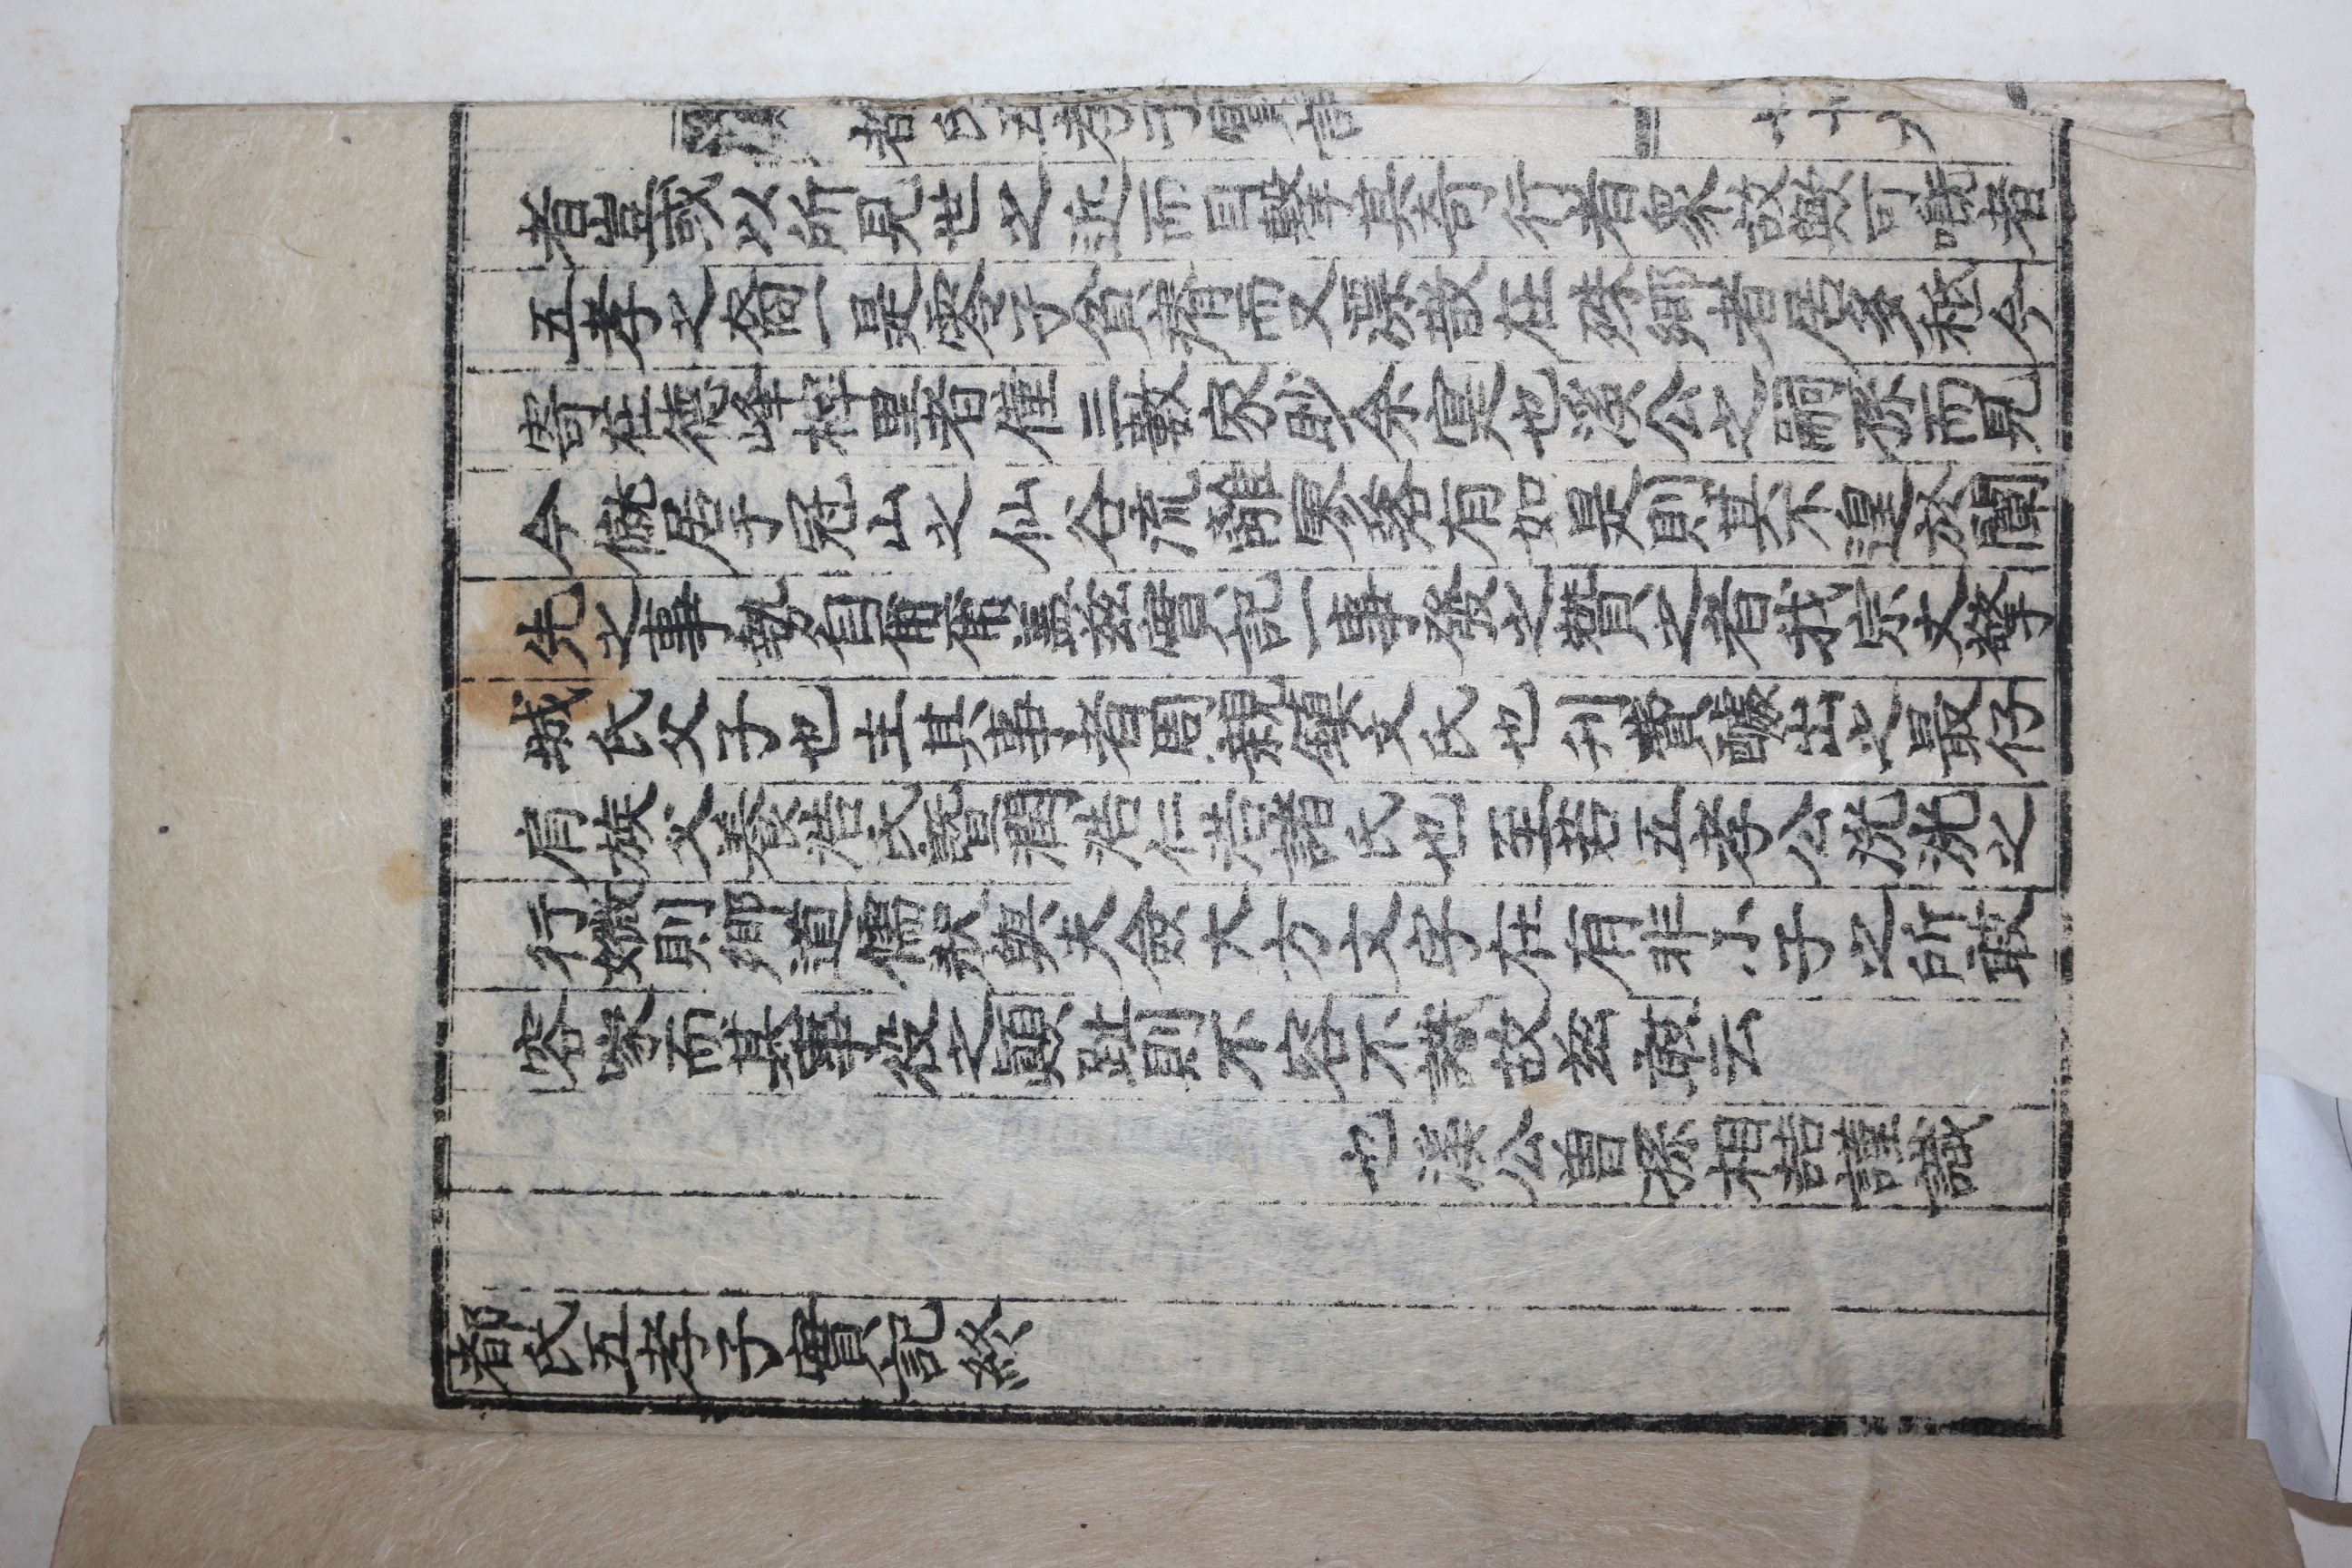 都氏五孝子實記
者豈或以所見世之近而目擊其奇行者衆故歟可嘅者
五孝之裔一是零子貧瘠而又漂散在殊鄉者居多秪今
寄在德峰梓里者僅三數家眇余寔也溪公之嗣孫而見
今僦居于冠山之仙谷流離寥落有如是則其不遑於闡
先之事勢自爾爾盖玆實記一事發之贊之者我宗丈擎
城氏父子也主其事者周親鎭文氏也刋費醵出之最仔
肩族父養浩氏曁潤浩仁浩諸氏也至若五孝公洸洸之
行媺則鄉道儒狀與夫僉大方文字在有非小子之所敢
容喙而其事役之顚趾則不容不識故玆敢云
也溪公曾孫相喆謹識
都氏五孝子實記終